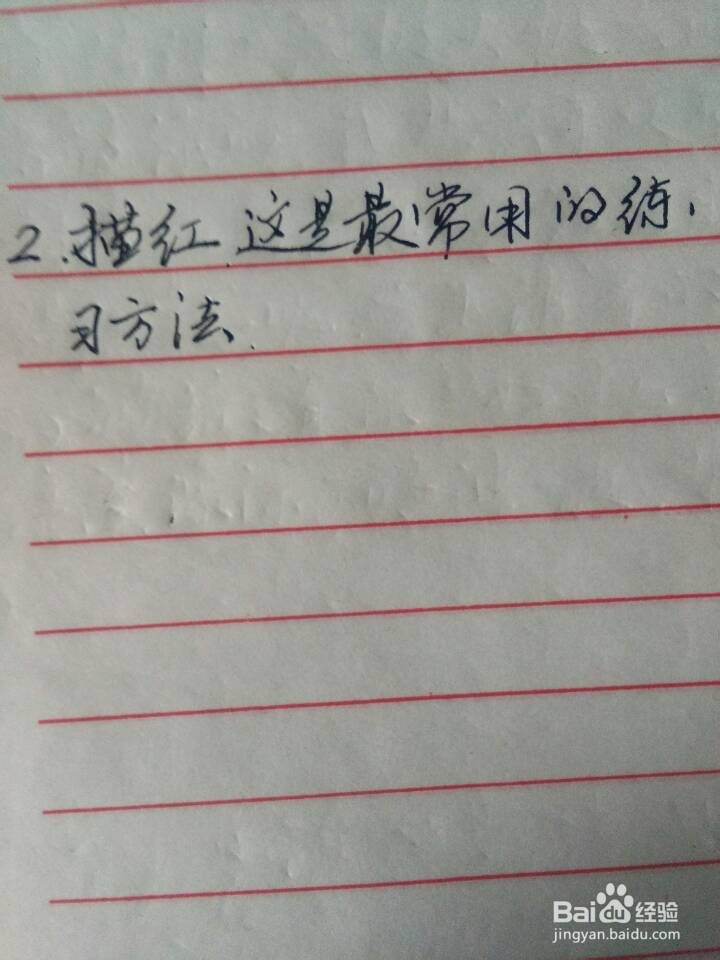 2.描红.这是最常用的练
习方法.
Baidu经验
jingyan.baidu.com